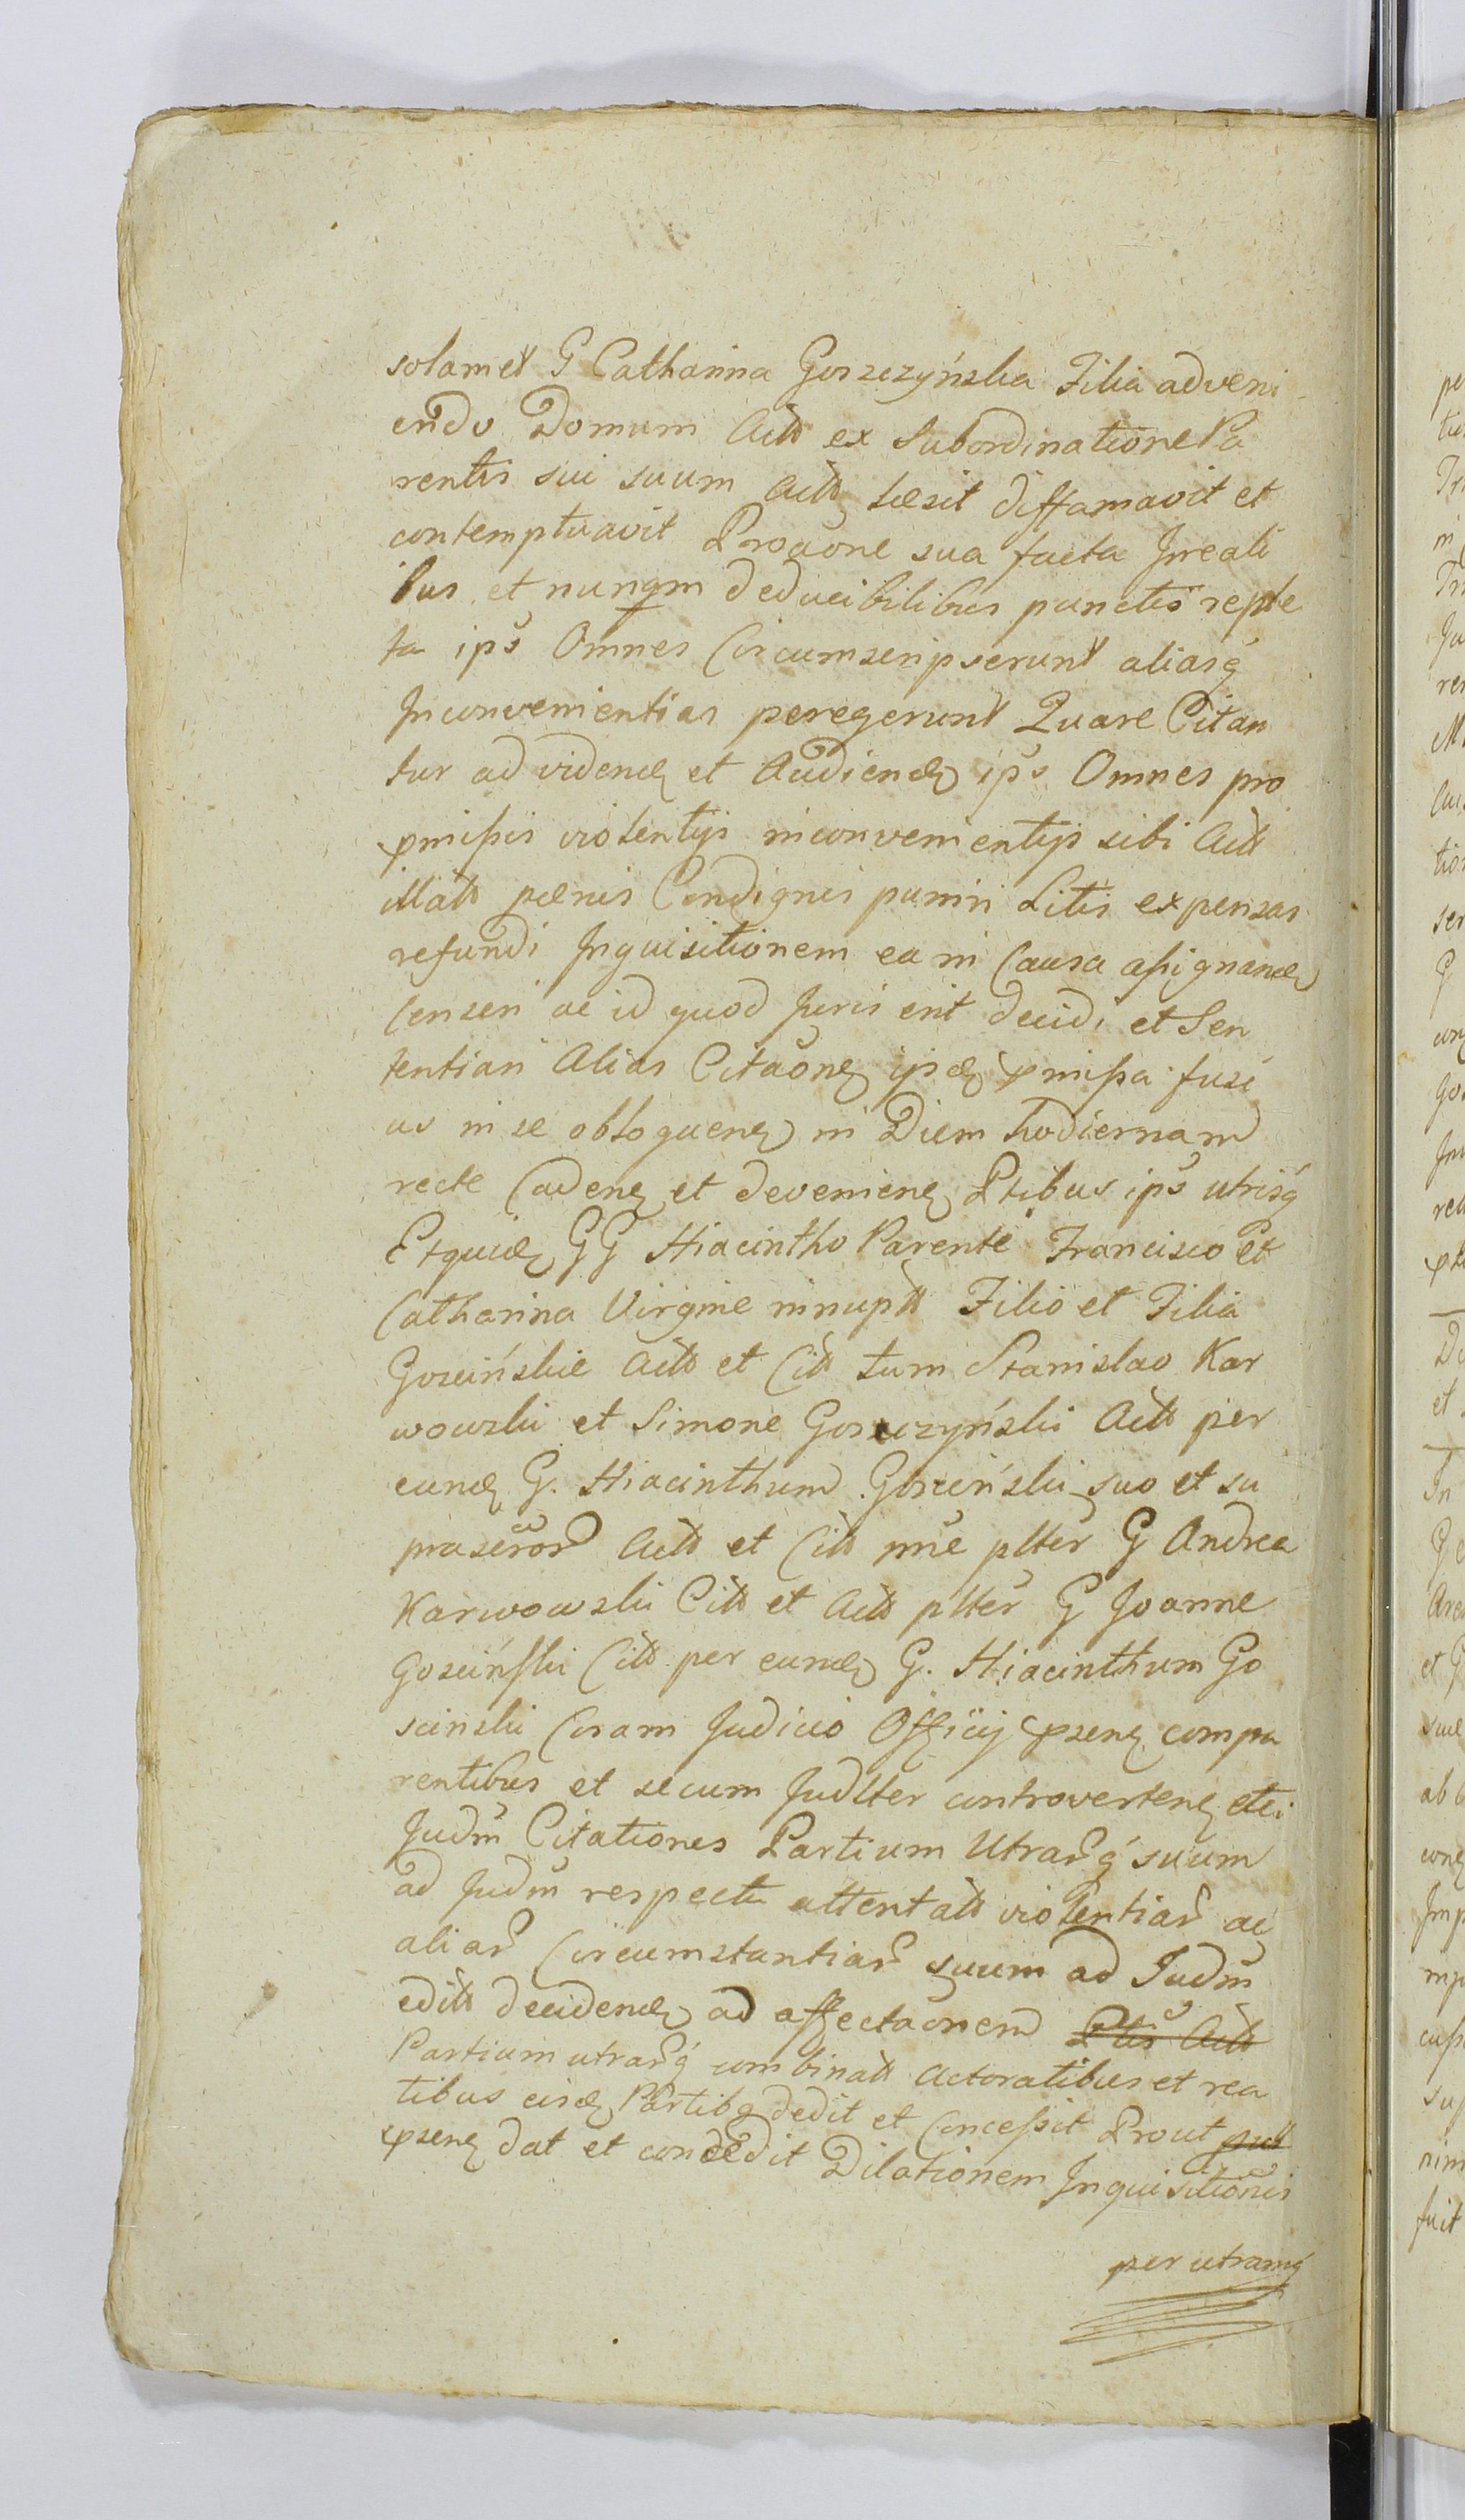 solamet G Catharina Goszczyńska Filia adveni
endo Domum Actt ex Subordinatione Pa
rentis sui suum Actt læsit diffamavit et
contemptuavit Proõone sua facta Jrreali
bus et nunqm deducibilibus punctis reple
ta ips Omnes Circumscripserunt aliasq
Jnconvenientias peregerunt Quare Citan
tur ad videnđ et Audienđ ips Omnes pro
pmissis violentijs inconvenientijs sibi Actt
illatt pœnis Condignis puniri Litis expensas
refundi Jnquisitionem ea in Causa assignanđ
Censeri ac id quod Juris erit decidi et Sen
tentiari Alias Citaõne ipđ pmissa fusi
us in se obloquenẽ in Diem hodiernam
recte Cadenẽ et devenienẽ Ptibus ips utrisq
Etquiđ GG Hiacintho Parente Francisco et
Catharina Virgine innuptt Filio et Filia
Goscińskie Actt et Citt tum Stanislao Kar
wowski et Simone Goszczyński Actt per
eunđ G. Hiacinthum Gosciński suo et su
prascror Actt et Citt nne pltter G Andrea
Karwowski Citt et Actt pltter G Joanne
Gosciński Citt per eunđ G. Hiacinthum Go
scinski Coram Judicio Officij psenẽ compa
rentibus et secum Judltter controvertenẽ etci
Judm Citationes Partium Utrarq suum
ad Judm respectu attentatt violentiar ac
aliar Circumstantiar suum ad Judm
editt decidenđ ad affectaõnem Ptis Actt
Partium utrarq combinatt Actoratibus et rea
tibus eisđ Partibq dedit et Concessit Prout put
psenẽ dat et concedit Dilationem Jnquisitionis
per utramq